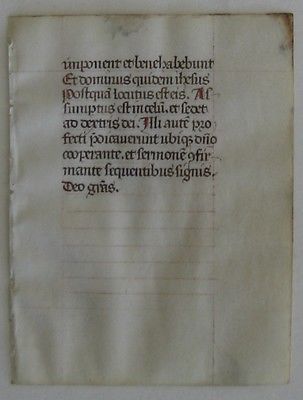 imponent et bene habebunt
Et dominus quidem ihesus
Postquā locutus est eis. As
sumptus est in celū. et sedet
ad dextris dei. Illi autē pro
fecti p̄dicaverunt ubiqꝫ dn̄o
cooperante. et sermonē ꝯfir
mante sequentibus signis.
Deo grās.